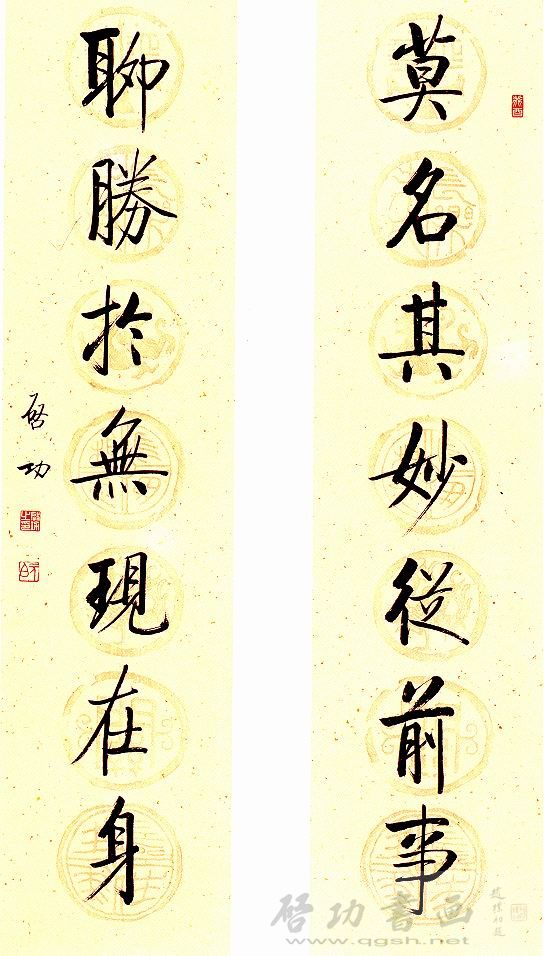 莫名其妙從前事
聊勝於無現在身
啓功
启功书画
www.qgsh.net